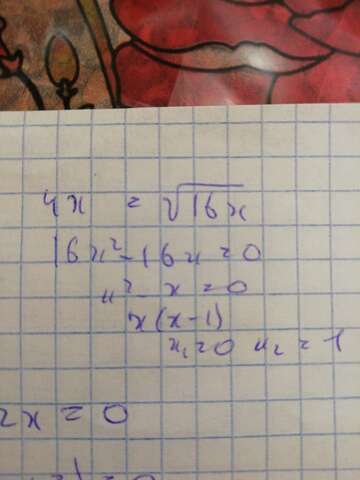 4x = √16x
16x² - 16x = 0
x² - x = 0
x(x-1)
x₁ = 0 x₂ = 1
2x = 0